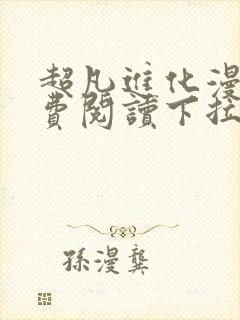 超凡進化漫
費閱讀下拉
孫漫龔